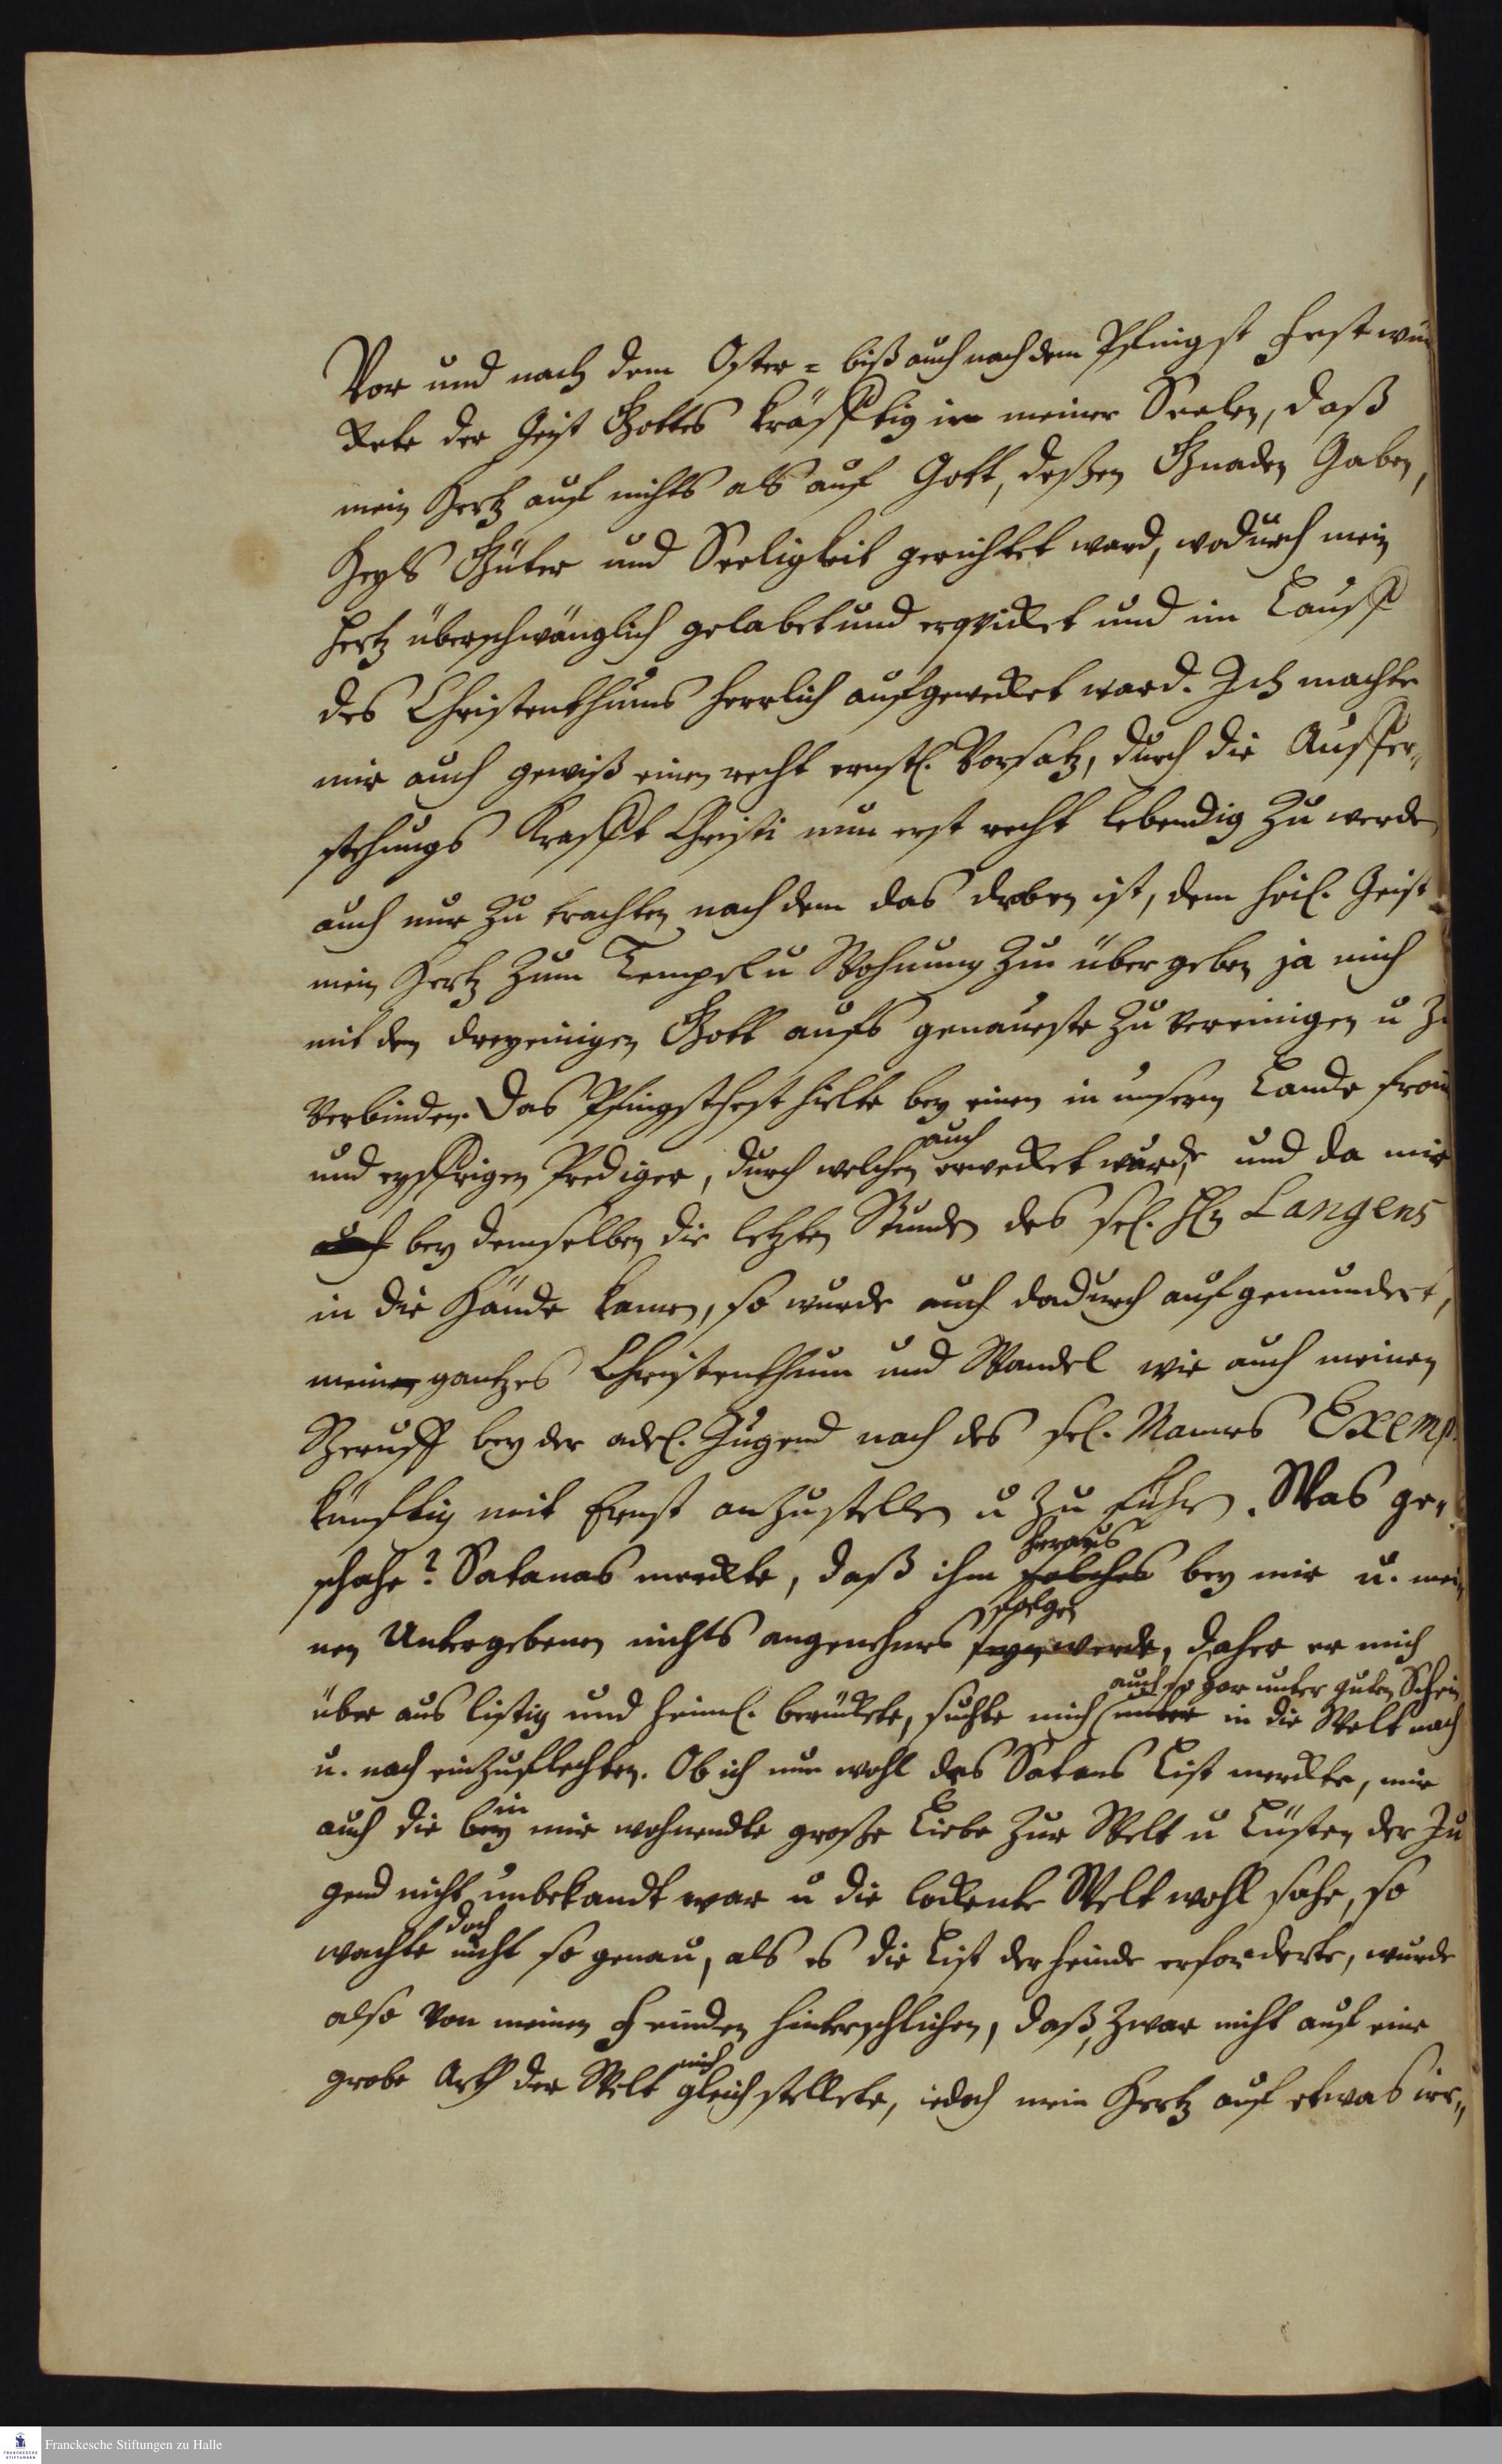 Vor und nach dem Oster- biß auch nach dem Pfingst Fest wür
ckete der Geist Gottes kräfftig in meiner Seelen, daß
mein Hertz auf nichts als auf Gott, deßen Gnaden Gaben,
Heyls Güter und Seeligkeit gerichtet ward, wodurch mein
Hertz überschwänglich gelabet und erqvicket und im Lauff
des Christenthums herrlich aufgewecket ward. Ich machte
mir auch gewiß einen recht ernstl. Vorsatz, durch die Auffer-
stehungs Krafft Christi nun erst recht lebendig zu werde
auch nur zu trachten nach dem das droben ist, dem heil. Geist
mein Hertz zum Tempel u Wohnung zu übergeben ja mich
mit den dreyeinigen Gott aufs genaueste zu vereinigen u z
verbinden. Das Pfingstfest hielte bey einen in unserm Lande from
auch
und eyffrigen Prediger, durch welchen erwecket wurde, und da mir
auch bey demselben die letzten Stunden des sel. Hn Langens
in die Hände kamen, so wurde auch dadurch aufgemundert,
meinen gantzes Christenthum und Wandel wie auch meinen
Beruff bey der adel. Jugend nach des sel. Mannes Exemp
künftig mit Ernst anzustellen u zu führen. Was ge-
heraus
schahe? Satanas merckte, daß ihm solches bey mir u. mei
folgen
nen Untergebenen nichts angenehmes seyn werde, daher er mich
auch so gar unter guten Schein
über aus listig und heiml. berückete, suchte mich unter in die Welt nach
u. nach einzuflechten. Ob ich nun wohl des Satans List merckte, mir
in
auch die bey mir wohnendte große Liebe zur Welt u Lüsten der Ju
gend nicht unbekandt war u die lockente Welt wohl sahe, so
doch
wachte nicht so genau, als es die List der Feinde erforderte, wurde
also von meinen Feinden hinterschlichen, daß, zwar nicht auf eine
mich
grobe Arth der Welt gleich stellete, iedoch mein Hertz auf etwas irr-
Franckesche Stiftungen zu Halle